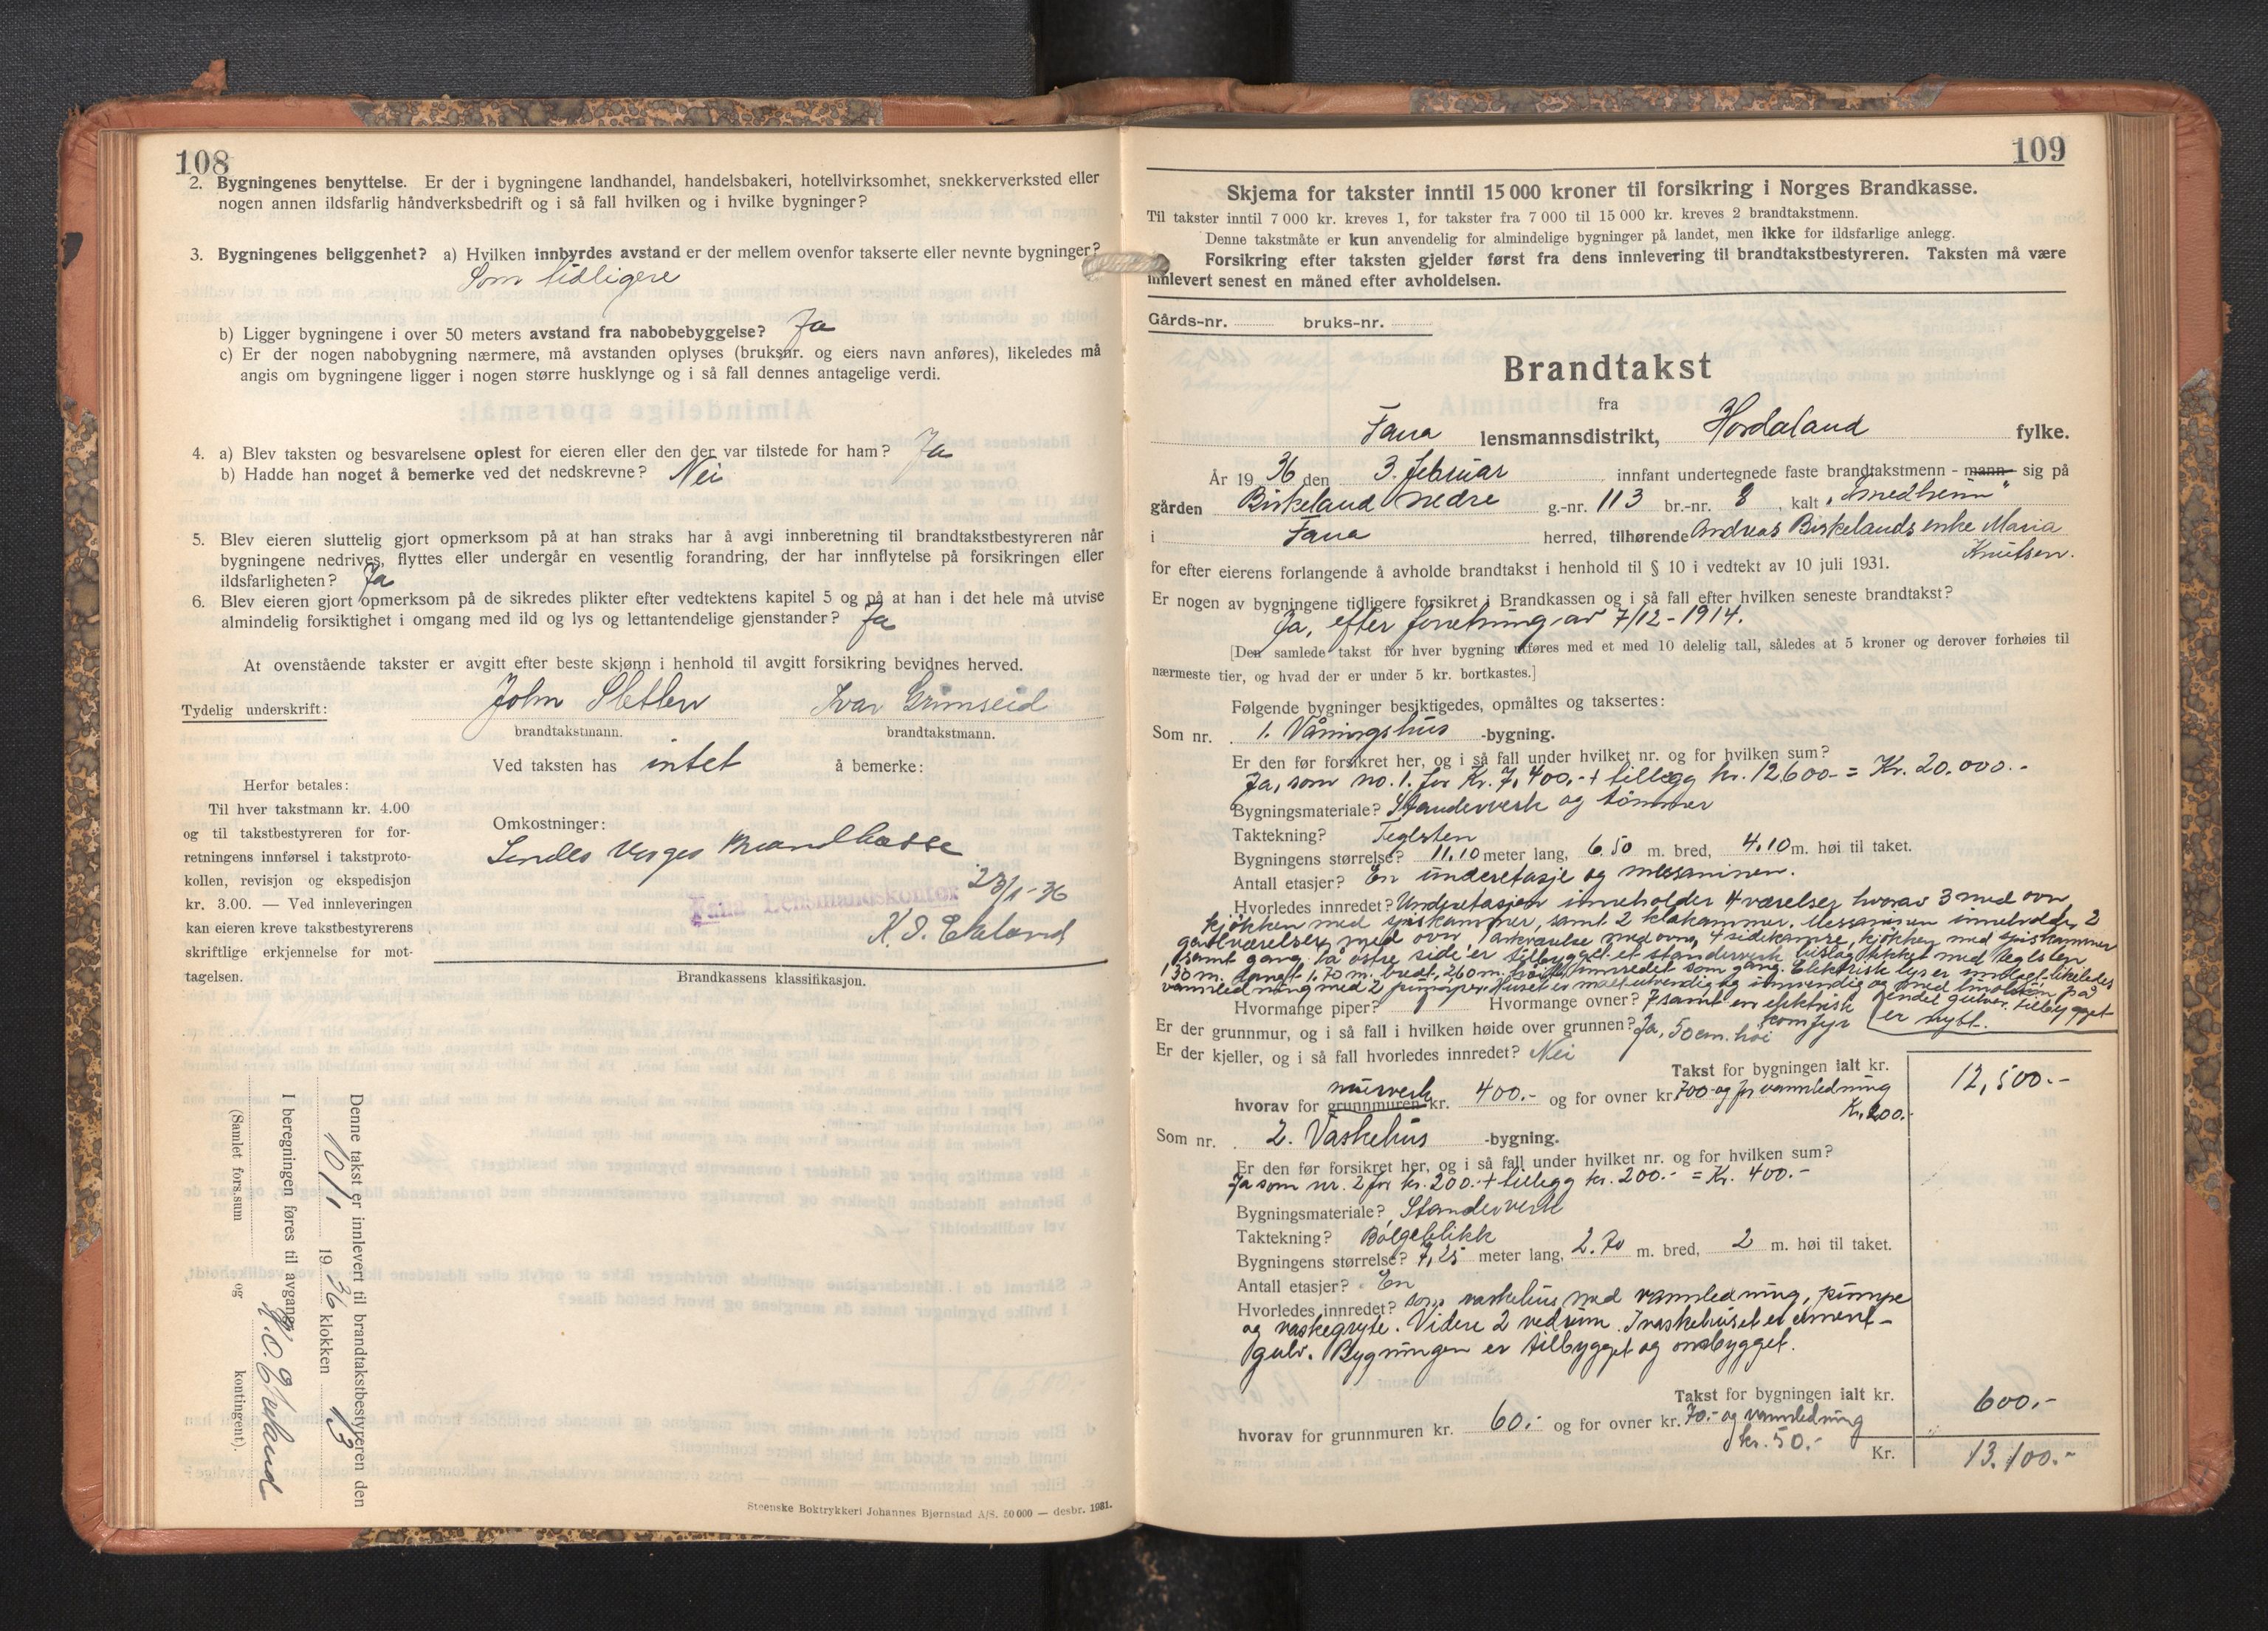 108
2. Bygningenes benyttelse. Er der i bygningene landhandel, handelsbakeri, hotellvirksomhet, snekkerverksted eller
nogen annen ildsfarlig håndverksbedrift og i så fall hvilken og i hvilke bygninger?
3. Bygningenes beliggenhet? a) Hvilken innbyrdes avstand er der mellem ovenfor takserte eller nevnte bygninger?
Som tidligere
b) Ligger bygningene i over 50 meters avstand fra nabobebyggelse? Ja
c) Er der nogen nabobygning nærmere, må avstanden oplyses (bruksnr. og eiers navn anføres), likeledes må
angis om bygningene ligger i nogen større husklynge og i så fall dennes antagelige verdi.
4. a) Blev taksten og besvarelsene oplest for eieren eller den der var tilstede for ham? Ja
b) Hadde han noget å bemerke ved det nedskrevne? Nei
5. Blev eieren sluttelig gjort opmerksom på at han straks har å avgi innberetning til brandtakstbestyreren når
bygningene nedrives, flyttes eller undergår en vesentlig forandring, der har innflytelse på forsikringen eller
ildsfarligheten? Ja
6. Blev eieren gjort opmerksom på de sikredes plikter efter vedtektens kapitel 5 og på at han i det hele må utvise
almindelig forsiktighet i omgang med ild og lys og lettantendelige gjenstander? Ja
At ovenstående takster er avgitt efter beste skjønn i henhold til avgitt forsikring bevidnes herved.
Tydelig underskrift: John Sletten Ivar Grimseid
brandtakstmann. brandtakstmann.
Ved taksten has intet å bemerke:
Herfor betales:
Til hver takstmann kr. 4.00
og til takstbestyreren for for-
retningens innførsel i takstproto-
kollen, revisjon og ekspedisjon
kr. 3.00. — Ved innleveringen
kan eieren kreve takstbestyrerens
skriftlige erkjennelse for mot-
tagelsen.
Omkostninger:
Sendes Norges Brandkasse
Fana Lensmandskontor 23/1-36
K. O. Ekeland
Brandkassens klassifikasjon.
Denne takst er innlevert til brandtakstbestyreren den
10/1 1936 klokken 13
I beregningen føres til avgang:
K. O. Ekeland
(Samlet fors.sum og kontingent).
Steenske Boktrykkeri Johannes Bjørnstad A/S. 50 000 — desbr. 1931.
109
Skjema for takster inntil 15 000 kroner til forsikring i Norges Brandkasse.
Til takster inntil 7 000 kr. kreves 1, for takster fra 7 000 til 15 000 kr. kreves 2 brandtakstmenn.
Denne takstmåte er kun anvendelig for almindelige bygninger på landet, men ikke for ildsfarlige anlegg.
Forsikring efter taksten gjelder først fra dens innlevering til brandtakstbestyreren. Taksten må være
innlevert senest en måned efter avholdelsen.
Gårds-nr. bruks-nr.
Brandtakst
fra
Fana lensmannsdistrikt, Hordaland fylke.
År 1936 den 3. februar innfant undertegnede faste brandtakstmenn - mann sig på
gården Birkeland nedre g.-nr. 113 br.-nr. 8, kalt "Smedheim"
i Fana herred, tilhørende Andreas Birkelands enke Maria
Knutsen.
for efter eierens forlangende å avholde brandtakst i henhold til § 10 i vedtekt av 10 juli 1931.
Er nogen av bygningene tidligere forsikret i Brandkassen og i så fall efter hvilken seneste brandtakst?
Ja, efter forretning av 7/12-1914.
[Den samlede takst for hver bygning utføres med et med 10 delelig tall, således at 5 kroner og derover forhøies til
nærmeste tier, og hvad der er under 5 kr. bortkastes.]
Følgende bygninger besiktigedes, opmåltes og taksertes:
Som nr. 1. Våningshus -bygning.
Er den før forsikret her, og i så fall under hvilket nr. og for hvilken sum?
Ja, som no. 1. for Kr. 7,400.- + tillegg kr. 12600.- = Kr. 20.000.-
Bygningsmateriale? Standerverk og tømmer
Taktekning? Teglsten
Bygningens størrelse? 11.10 meter lang, 6.50 m. bred, 4.10 m. høi til taket.
Antall etasjer? En underetasje og messaninen.
Hvorledes innredet? Underetasjen inneholder 4 værelser hvorav 3 med ovn,
kjøkken med spiskammer, samt 2 klækammer. Messaninen inneholder 2
gavlværelser med ovn, 1 arkværelse med ovn, 4 sidekamre, kjøkken med spiskammer
samt gang. På østre side er tilbygget et standerverk bislag tekket med teglsten
1,30 m. langt 1,70 m. bredt, 2,60 m. høit, innredet som gang. Elektrisk lys er innlagt likeledes
vannledning med 2 . Huset er malt utvendig og innvendig og med linoleum på
endel gulver. Tilbygget
er nytt.
Hvormange piper? Hvormange ovner? 7 samt en elektrisk
komfyr
Er der grunnmur, og i så fall i hvilken høide over grunnen? Ja, 50 cm. høi
Er der kjeller, og i så fall hvorledes innredet? Nei
Takst for bygningen ialt kr. 12,500.-
murverk
hvorav for grunnmuren kr. 400.- og for ovner kr. 700 og for vannledning
Kr. 200.-
Som nr. 2. Vaskehus -bygning.
Er den før forsikret her, og i så fall under hvilket nr. og for hvilken sum?
Ja som nr. 2 for kr. 200.- + tillegg kr. 200.- = Kr. 400.-
Bygningsmateriale? Standerverk
Taktekning? Bølgeblikk
Bygningens størrelse? 7,25 meter lang, 2.70 m. bred, 2 m. høi til taket.
Antall etasjer? En
Hvorledes innredet? som vaskehus med vannledning, pumpe
og vaskegryte. Videre 2 vedrum. I vaskehuset er cement-
gulv. Bygningen er tilbygget og ombygget.
Takst for bygningen ialt kr. 600.-
hvorav for grunnmuren kr. 60.- og for ovner kr. 70.- og vannledning
kr. 50.-
Kr. 13.100.-